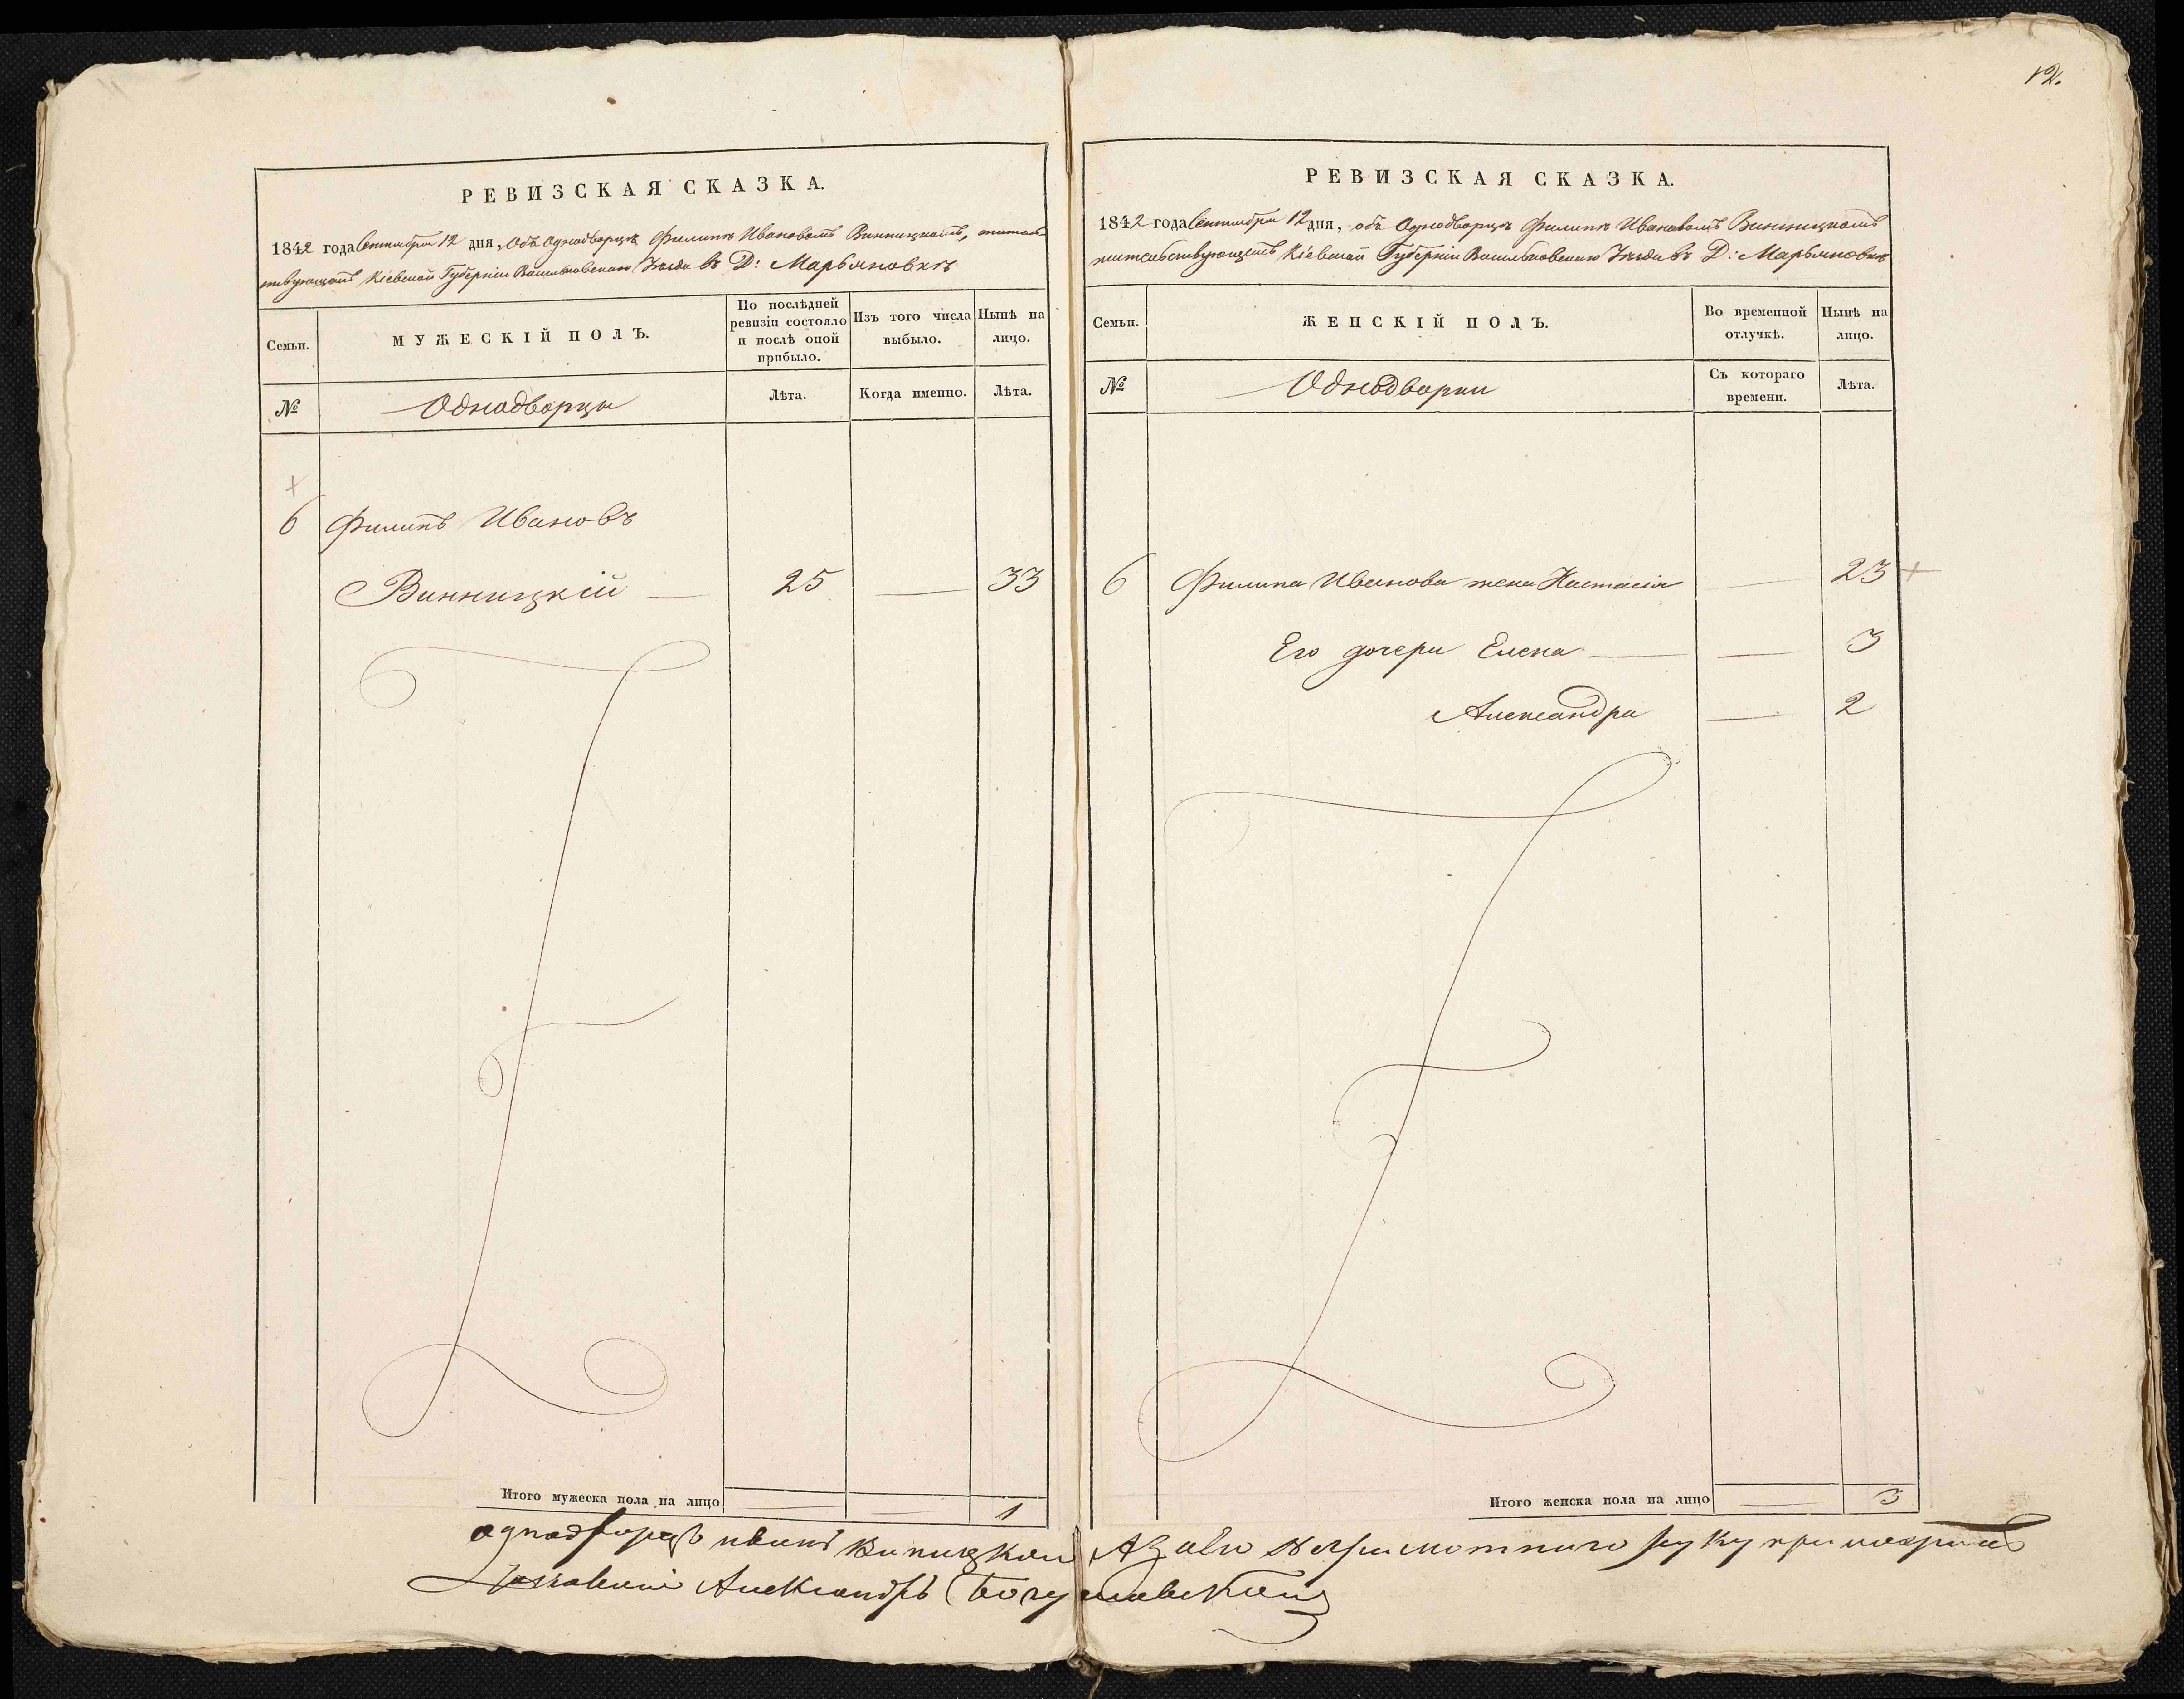 12.
РЕВИЗСКАЯ СКАЗКА.
1842 года Сентября 12 дня, Объ Однодворцѣ Филипѣ Ивановомъ Винницкомъ, житель-
ствующемъ Кіевской Губерніи Васильковскаго Уѣзда въ Д: Марьяновкѣ
Семьи.
МУЖЕСКІЙ ПОЛЪ.
По послѣдней ревизіи состояло и послѣ оной прибыло.
Изъ того числа выбыло.
Нынѣ на лицо.
№
Однодворцы
Лѣта.
Когда именно.
Лѣта.
6 Филипъ Ивановъ
Винницкій — 25 — 33
Итого мужеска пола на лицо — — 1
РЕВИЗСКАЯ СКАЗКА.
1842 года Сентября 12 дня, объ Однодворцѣ Филипѣ Ивановомъ Винницкомъ
жительствующемъ Кіевской Губерніи Васильковскаго Уѣзда въ Д: Марьяновкѣ
Семьи.
ЖЕНСКІЙ ПОЛЪ.
Во временной отлучкѣ.
Нынѣ на лицо.
№
Однодворки
Съ котораго времени.
Лѣта.
6 Филипа Иванова жена Настасія — 23
Его дочери Елена — — 3
Александра — 2
Итого женска пола на лицо — 3
однодворецъ иванъ Виницкой А за его неграмотнаго руку приложилъ
Александръ Богуславскій